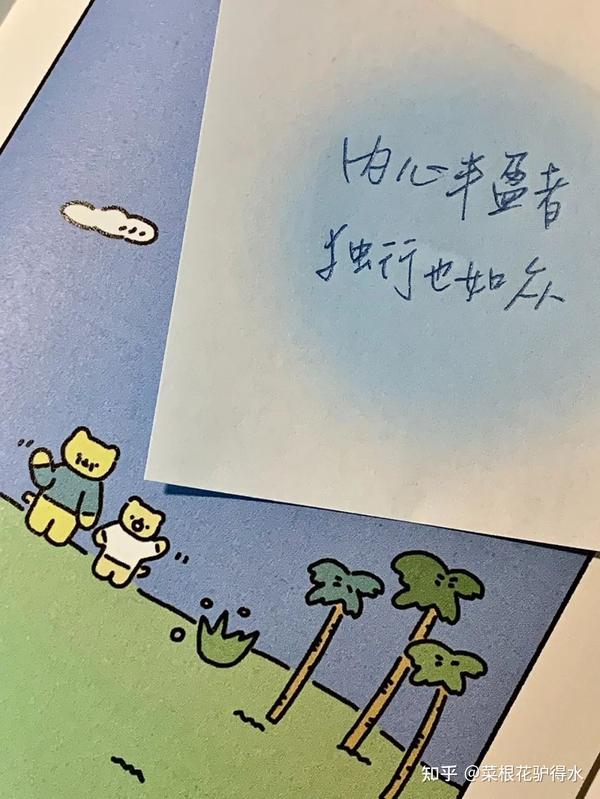 内心丰盈者
独行也如众
知乎 @菜根花驴得水